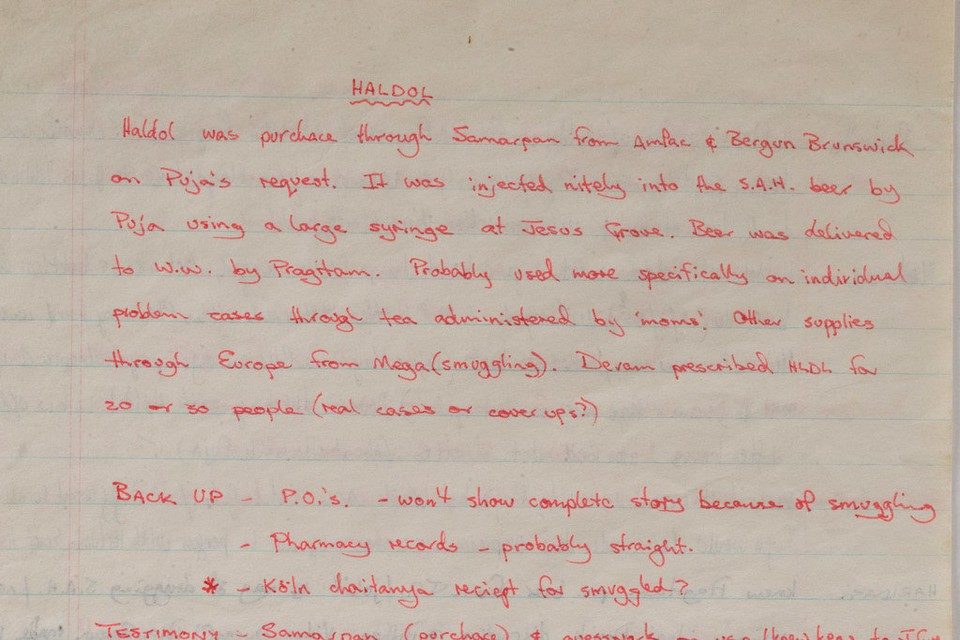 HALDOL
Haldol was purchace through Samarpan from Amfac & Bergun Brunswick
on Puja's request. It was injected nitely into the S.A.H. beer by
Puja using a large syringe at Jesus Grove. Beer was delivered
to W.W. by Pragitam. Probably used more specifically on individual
problem cases through tea administered by 'moms'. Other supplies
through Europe from Mega (smuggling). Devaraj prescribed HLDL for
20 or 30 people (real cases or cover ups?)
BACK UP - P.O.'s. - won't show complete story because of smuggling
- Pharmacy records - probably straight.
* - Köln chaitanya reciept for smuggled?
TESTIMONY - Samarpan (purchace) &